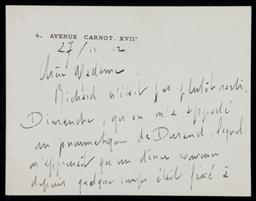 4, AVENUE CARNOT. XVIIE
27/11 12
Chère Madame
Richard n'était pas plutôt sorti,
Dimanche, qu'on m'a apporté
un pneumatique de Durand, lequel
m'apprenait qu'un dîner convenu
depuis quelque temps était fixé à